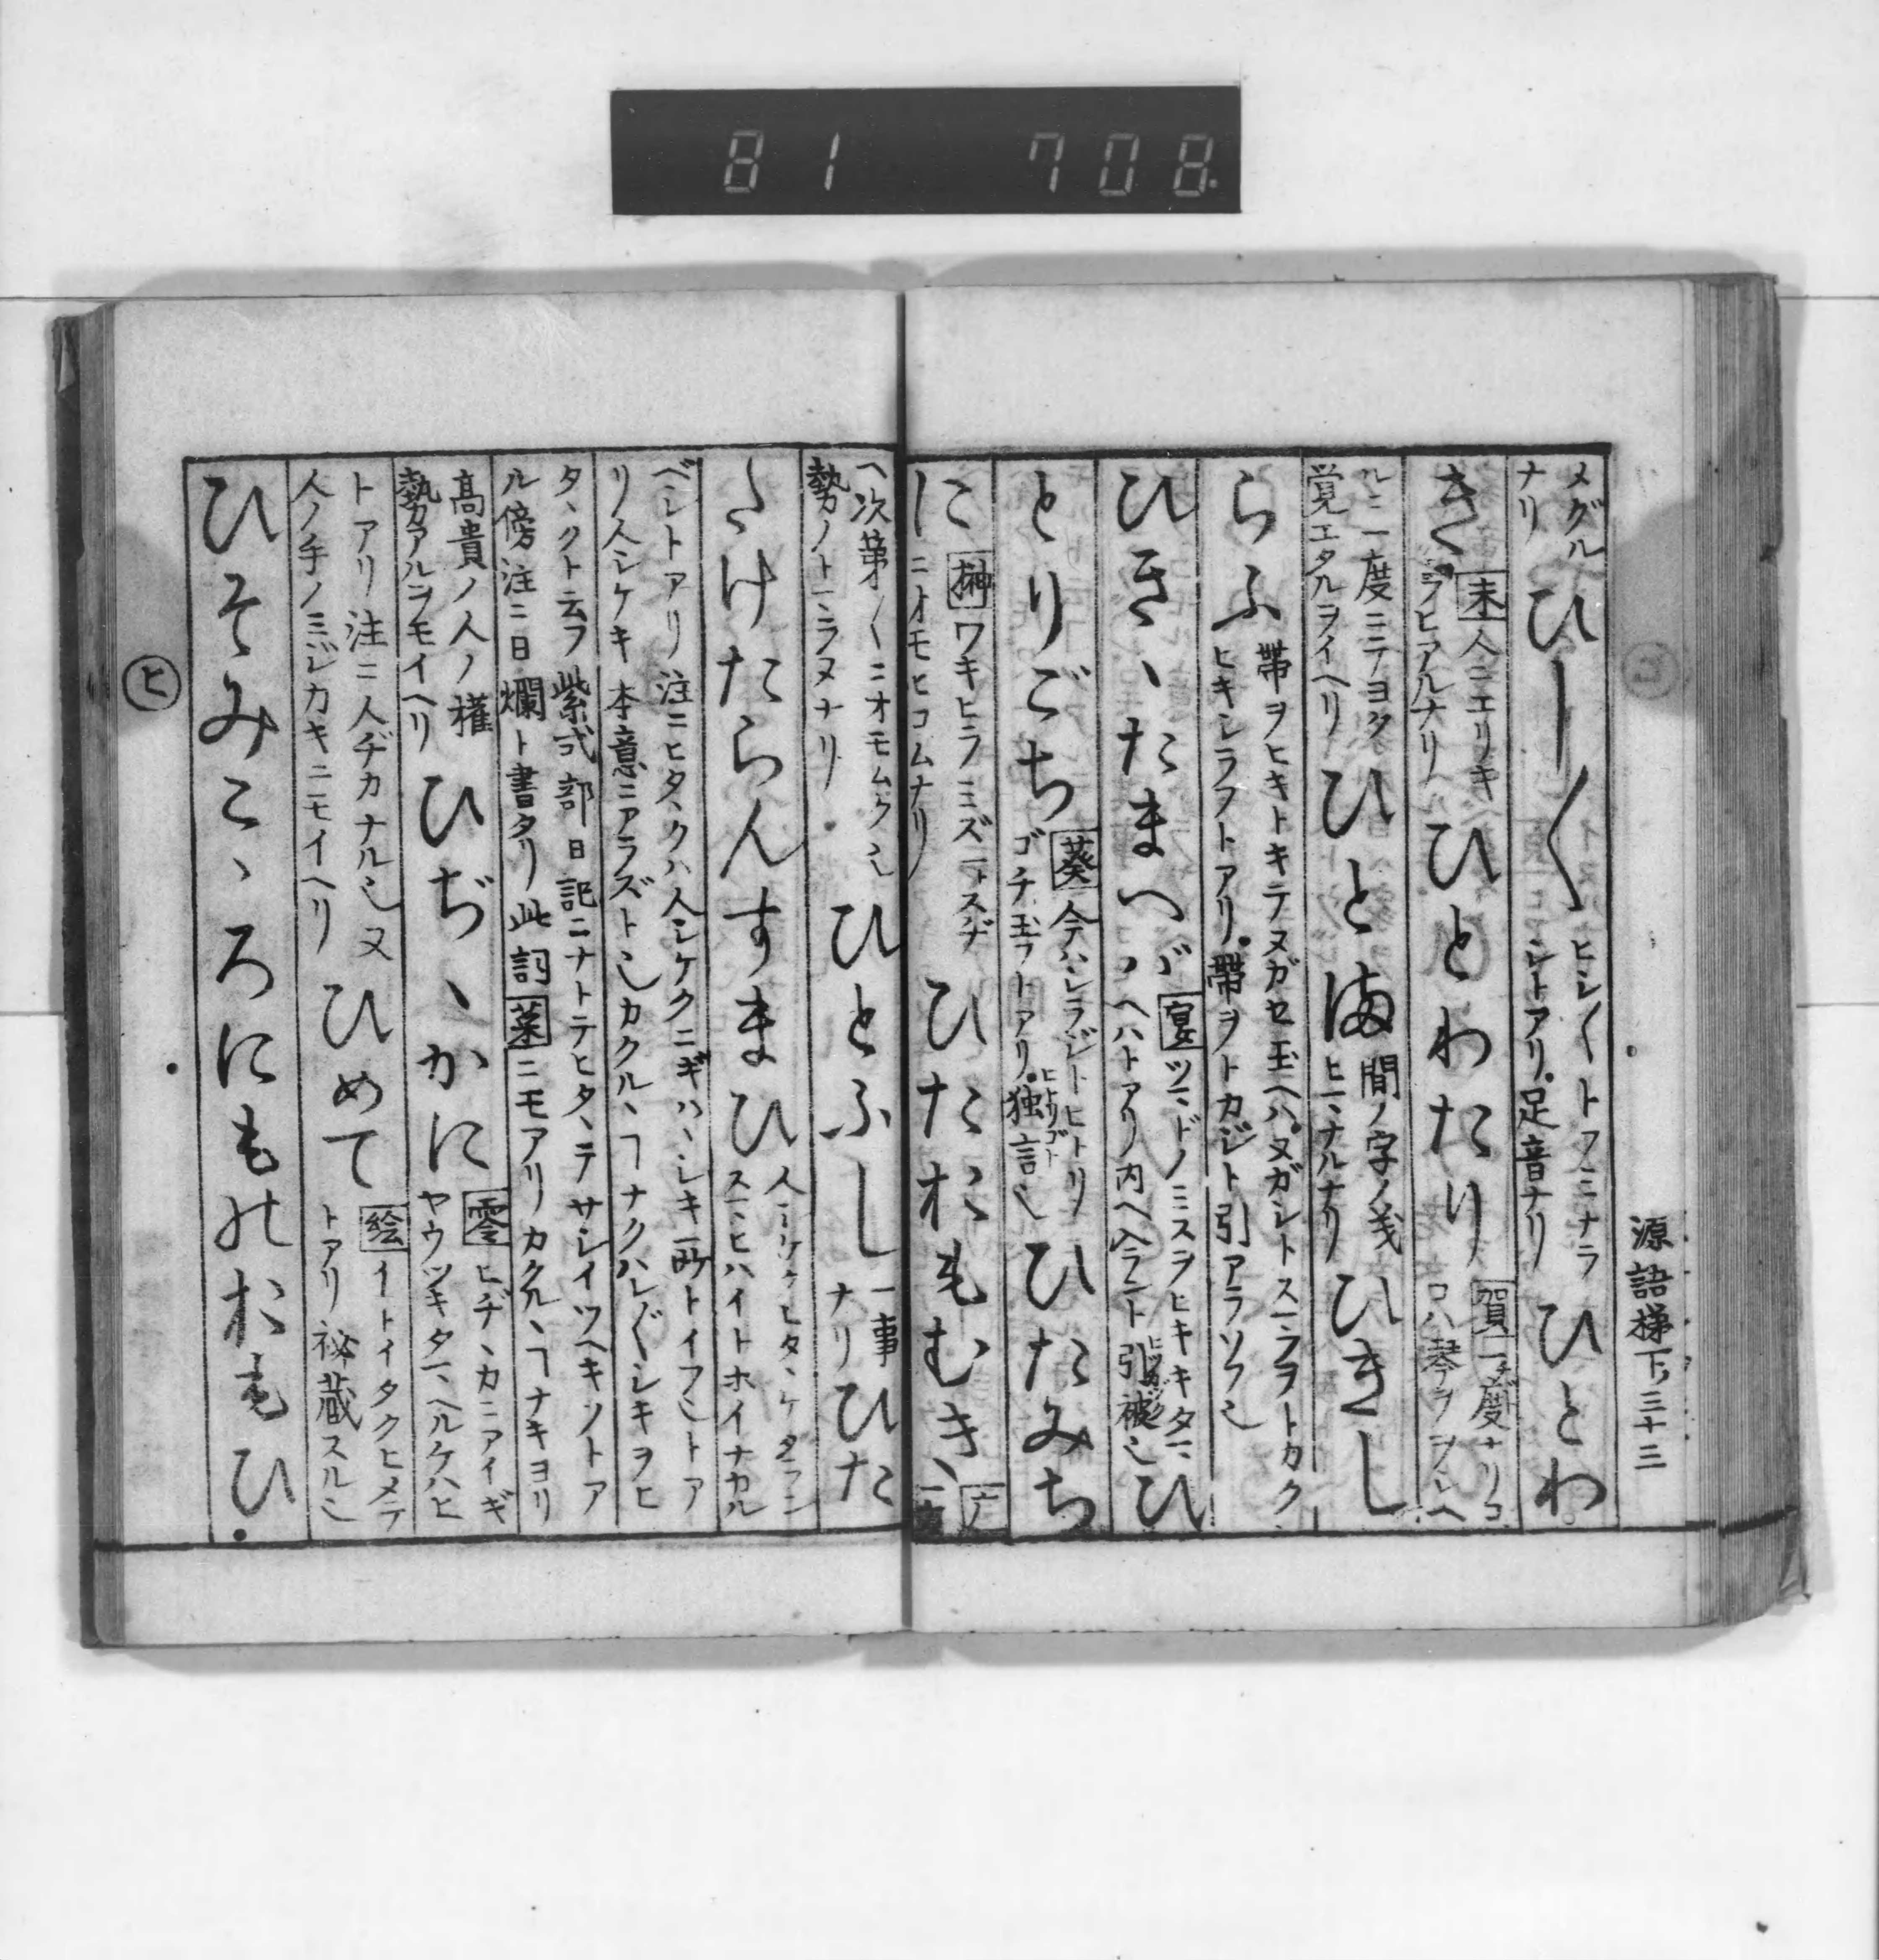 81 708.
源語梯下ノ三十三
メグル
ナリ
ひし〱
ヒシ〱トフミナラ
シトアリ。足音ナリ
ひとわ
き
末
人ニエリキ
ラヒアルナリ
ひとわたり
賀
一度ナリコ
ロハ琴ヲヲシヘ
ルニ一度ニテヨク
覚エタルヲイヘリ
ひとま
間ノ字ノ義
ヒマナルナリ
ひきし
らふ
帯ヲヒキトキテヌガセ玉ヘハヌガシトスマフヲトカク
ヒキシラフトアリ。帯ヲトカジト引アラソフ也
ひきゝたまへば
宴
ツマドノミスヲヒキキタマ
ヘハトアリノ内ヘ入ラント引被也
ひ
とりごち
葵
今ハシラジトヒトリ
ゴチ玉フトアリ。独言也
ヒトリゴト
ひたみち
に
榊
ワキヒラミズ一トスヂ
ニオモヒコムナリ
ひたおもむきゝ
ヘ次第〱ニオモムク也
勢ノトマラヌナリ
ひとふし
一事
ナリ
ひた
たけたらんすまひ
人シケクヒタヽケタラン
スマヒハイトホイナカル
ベシトアリ注ニヒタヽクハ人シケクニギハヽシキ所トイフ也トア
リ人シケキ本意ニアラズト也カクルヽコナクハレ〲シキヲヒ
タヽクト云フ紫式部日記ニナトテヒタヽテサシイツヘキソトア
ル傍注ニ日爛ト書タリ此詞
薬
ニモアリカクルヽコナキヨリ
高貴ノ人ノ権
勢アルヲモイヘリ
ひぢゝかに
零
ヒヂヽカニアイギ
ヤウツキタマヘルケハヒ
トアリ注ニ人ヂカナル也又
人ノ手ノミジカキニモイヘリ
ひめて
絵
イトイタクヒメテ
トアリ祕蔵スル也
ひそみこゝろにものおもひ
ヒ